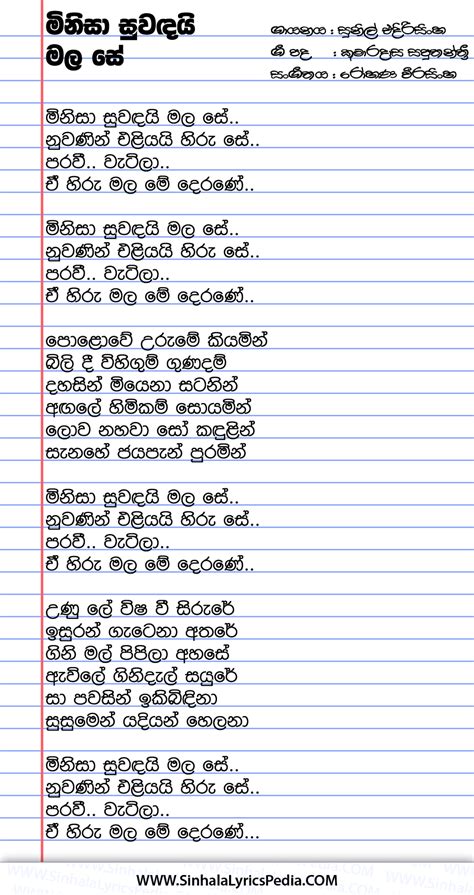 මිනිසා සුවඳයි
මල සේ
ගායනය : සුනිල් එදිරිසිංහ
ගී පද : කුමාරදාස සපුතන්ත්‍රී
සංගීතය : රෝහණ වීරසිංහ
මිනිසා සුවඳයි මල සේ..
නුවණින් එළියයි හිරු සේ..
පරවී.. වැටිලා..
ඒ හිරු මල මේ දෙරණේ..
මිනිසා සුවඳයි මල සේ..
නුවණින් එළියයි හිරු සේ..
පරවී.. වැටිලා..
ඒ හිරු මල මේ දෙරණේ..
පොළොවේ උරුමේ කියමින්
බිලි දී විහිගුම් ගුණදම්
දහසින් මියෙනා සටනින්
අඟලේ හිමිකම් සොයමින්
ලොව නහවා සෝ කඳුළින්
සැනහේ ජයපැන් පුරමින්
මිනිසා සුවඳයි මල සේ..
නුවණින් එළියයි හිරු සේ..
පරවී.. වැටිලා..
ඒ හිරු මල මේ දෙරණේ..
උණු ලේ විෂ වී සිරුරේ
ඉසුරන් ගැටෙනා අතරේ
ගිනි මල් පිපිලා අහසේ
ඇවිලේ ගිනිදැල් සයුරේ
සා පවසින් ඉකිබිඳිනා
සුසුමෙන් යදියන් හෙලනා
මිනිසා සුවඳයි මල සේ..
නුවණින් එළියයි හිරු සේ..
පරවී.. වැටිලා..
ඒ හිරු මල මේ දෙරණේ...
WWW.SinhalaLyricsPedia.COM